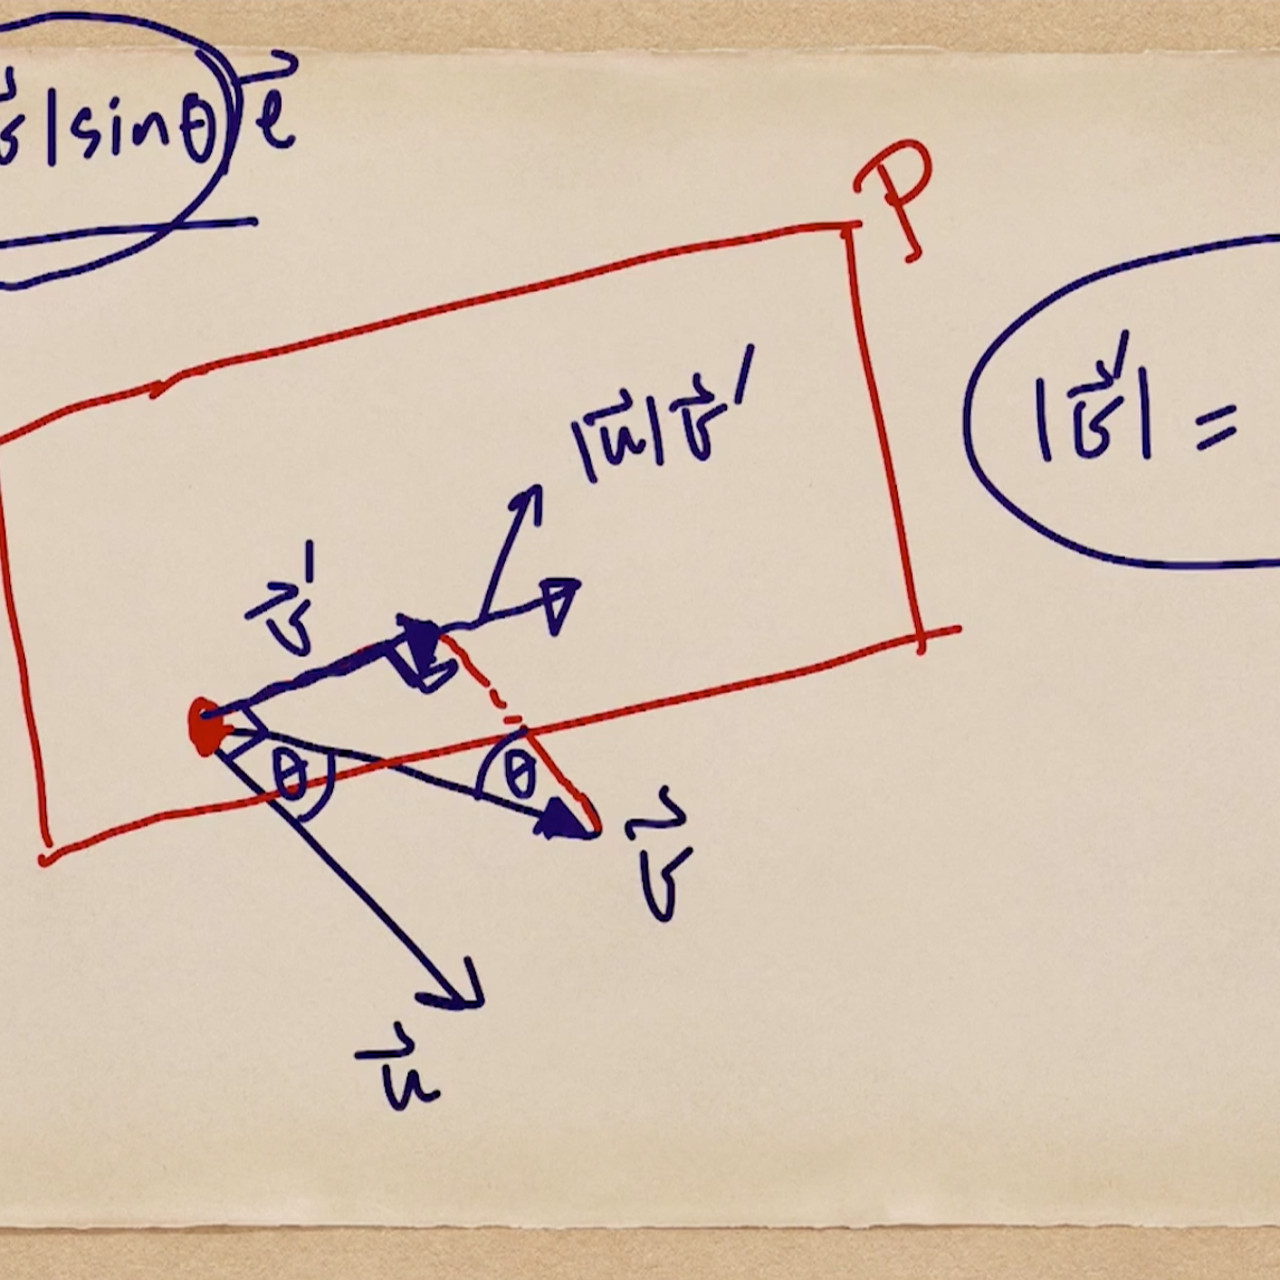 v⃗|sinθ)e⃗
P
|u⃗|v⃗′
|v⃗′| =
v⃗′
θ
θ
v⃗
u⃗